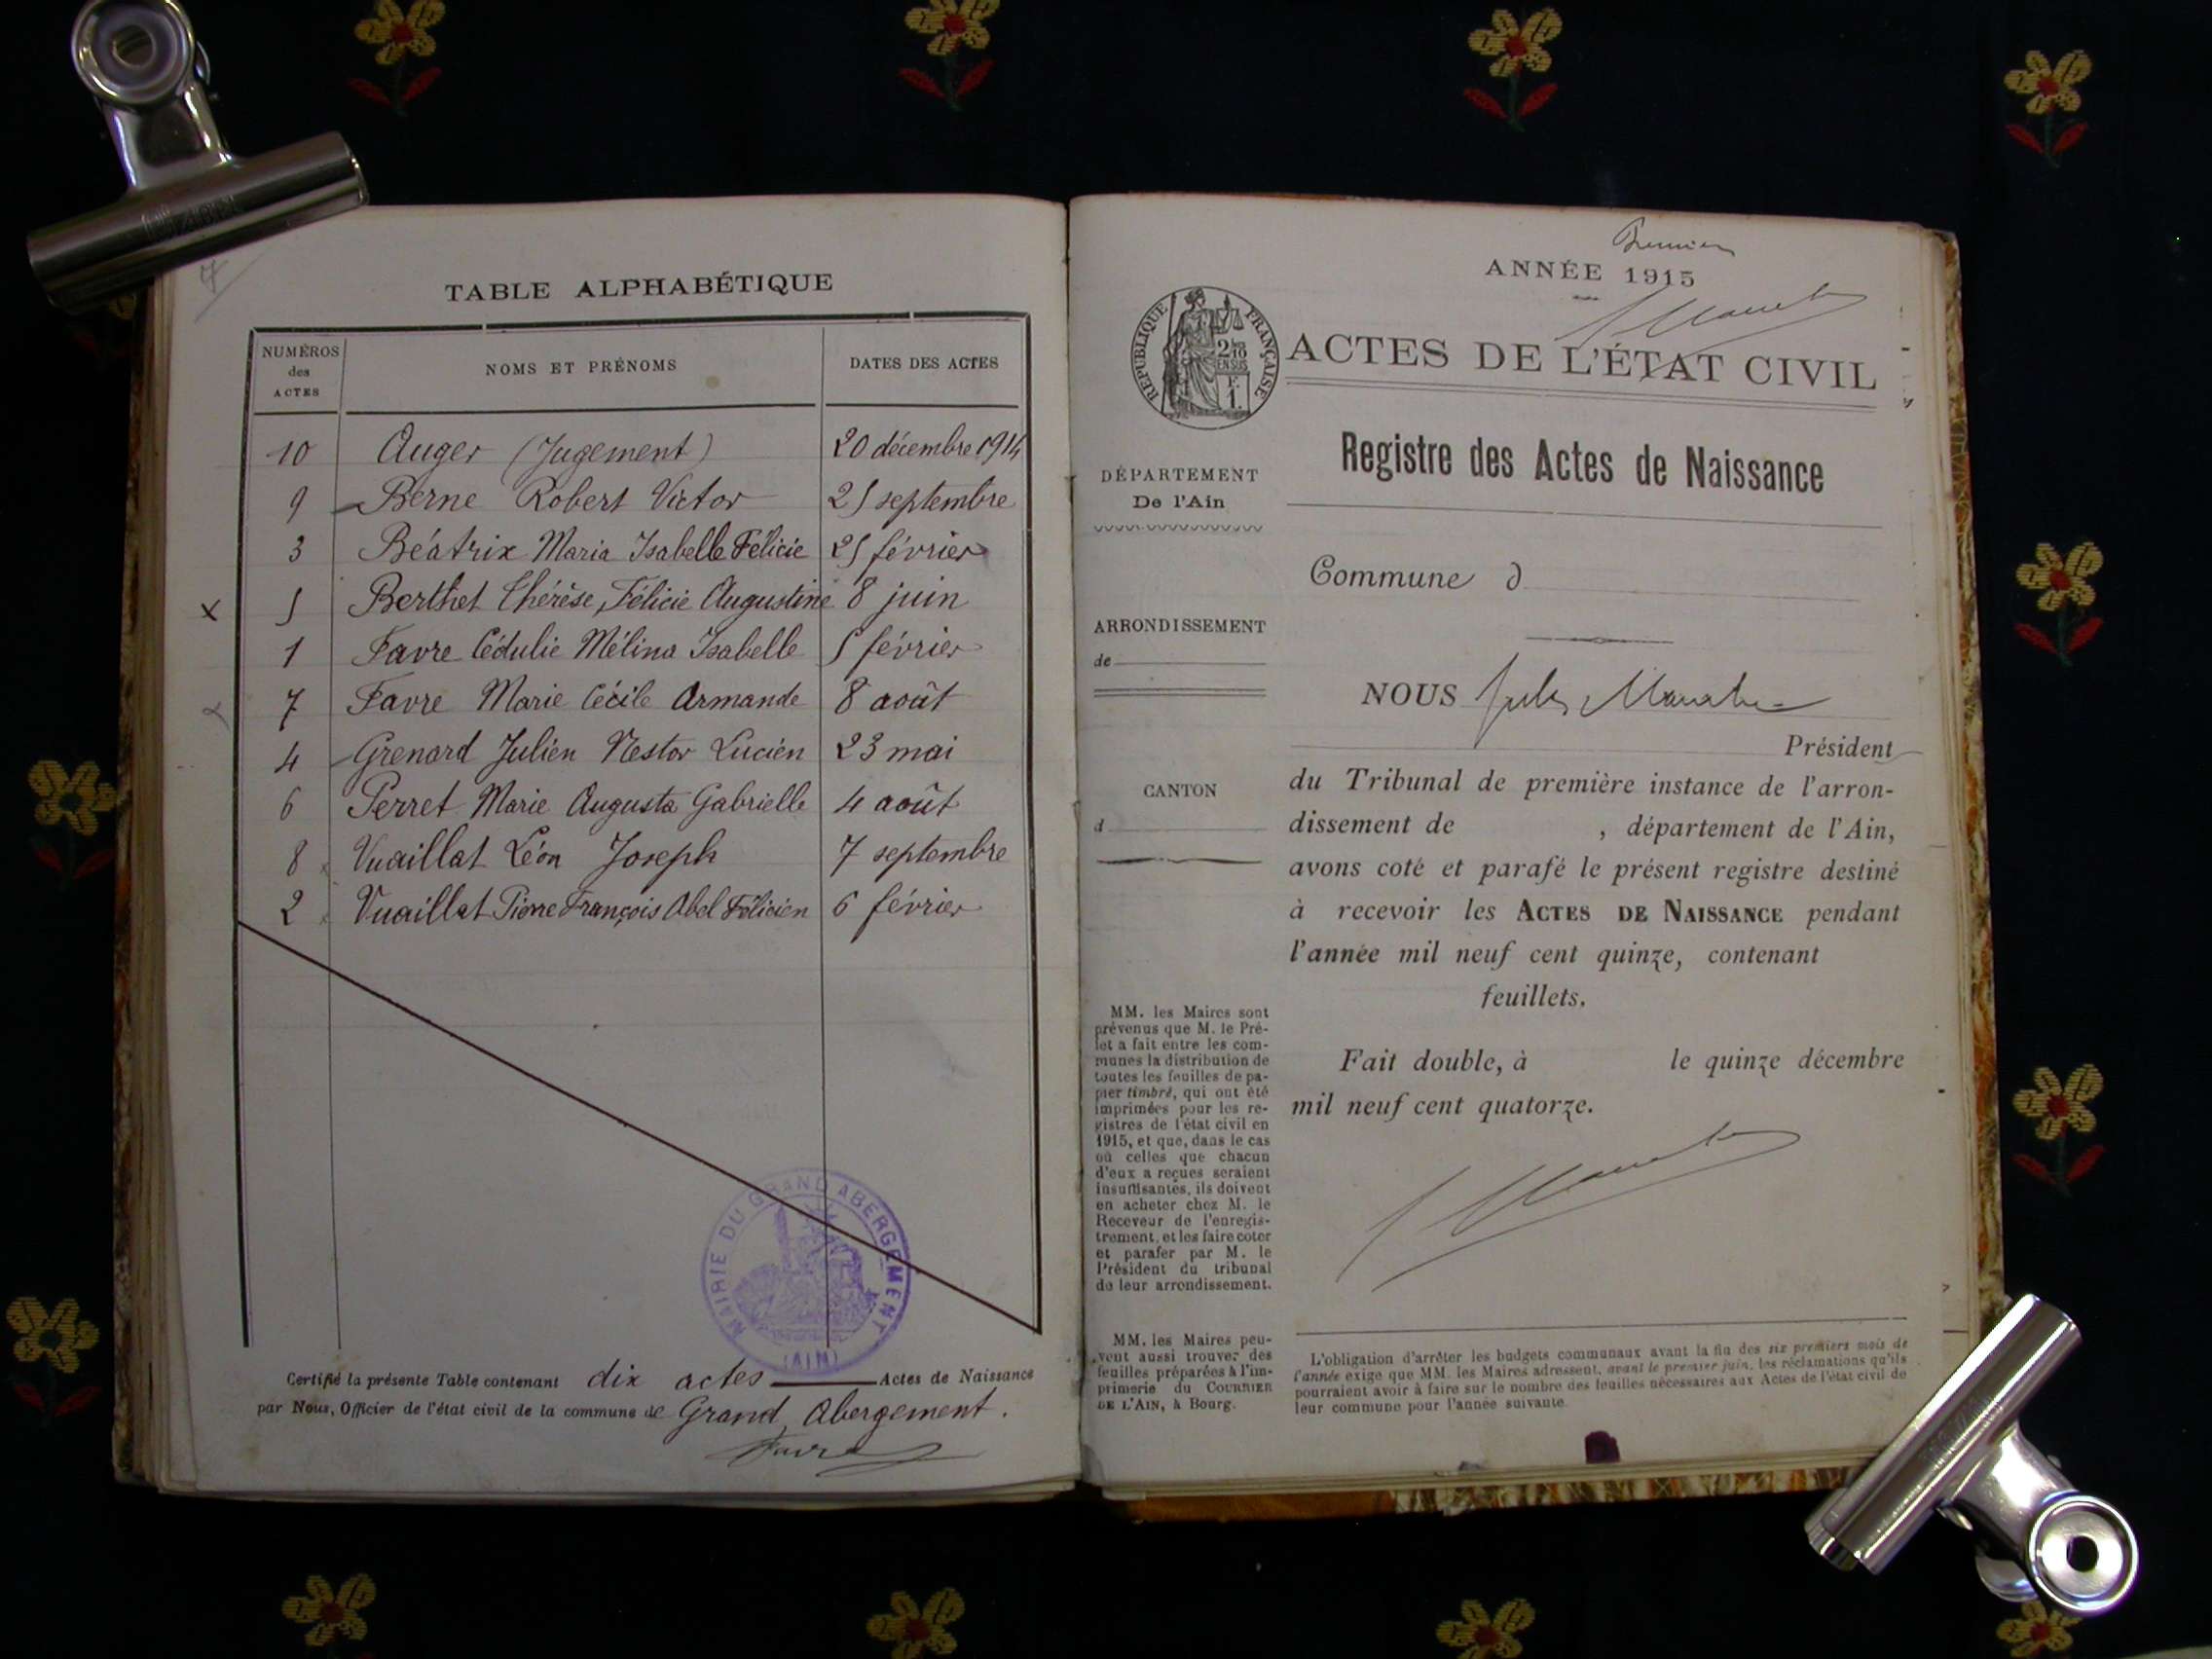 TABLE ALPHABÉTIQUE
NUMÉROS des ACTES
NOMS ET PRÉNOMS
DATES DES ACTES
10 Auger (Jugement) 20 décembre 1914
9 Berne Robert Victor 25 septembre
3 Béatrix Maria Isabelle Félicie 25 février
x 5 Berthet Thérèse, Félicie Augustine 8 juin
1 Favre Cédulie Mélina Isabelle 5 février
7 Favre Marie Cécile Armande 8 août
4 Grenard Julien Nestor Lucien 23 mai
6 Perret Marie Augusta Gabrielle 4 août
8 Vuaillat Léon Joseph 7 septembre
2 Vuaillat Pierre François Abel Félicien 6 février
MAIRIE DU GRAND ABERGEMENT
(AIN)
Certifié la présente Table contenant dix actes Actes de Naissance
par Nous, Officier de l'état civil de la commune de Grand Abergement.
Favre
Premier
ANNÉE 1915
RÉPUBLIQUE FRANÇAISE
2/10 EN SUS
F. 1.
ACTES DE L'ÉTAT CIVIL
Registre des Actes de Naissance
DÉPARTEMENT
De l'Ain
Commune d
ARRONDISSEMENT
de
NOUS Jules
Président
CANTON
d
du Tribunal de première instance de l'arron-
dissement de , département de l'Ain,
avons coté et parafé le présent registre destiné
à recevoir les ACTES DE NAISSANCE pendant
l'année mil neuf cent quinze, contenant
feuillets.
Fait double, à le quinze décembre
mil neuf cent quatorze.
MM. les Maires sont
prévenus que M. le Pré-
fet a fait entre les com-
munes la distribution de
toutes les feuilles de pa-
pier timbré, qui ont été
imprimées pour les re-
gistres de l'état civil en
1915, et que, dans le cas
où celles que chacun
d'eux a reçues seraient
insuffisantes, ils doivent
en acheter chez M. le
Receveur de l'enregis-
trement, et les faire coter
et parafer par M. le
Président du tribunal
de leur arrondissement.
MM. les Maires peu-
vent aussi trouver des
feuilles préparées à l'im-
primerie du COURRIER
DE L'AIN, à Bourg.
L'obligation d'arrêter les budgets communaux avant la fin des six premiers mois de
l'année exige que MM. les Maires adressent, avant le premier juin, les réclamations qu'ils
pourraient avoir à faire sur le nombre des feuilles nécessaires aux Actes de l'état civil de
leur commune pour l'année suivante.